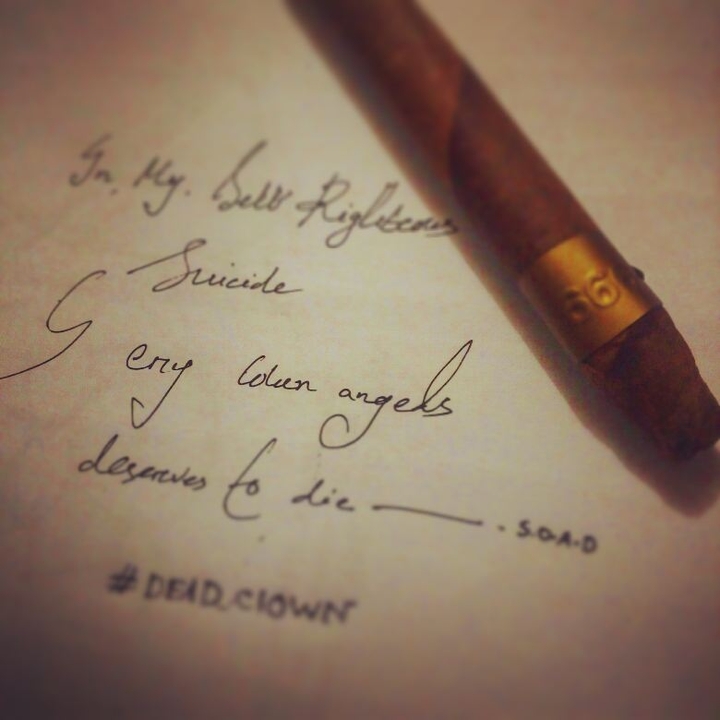 In. My. Self Righteous
Suicide
I cry when angels
deserves to die — . S.O.A.D
#DEAD_ClOWN
66